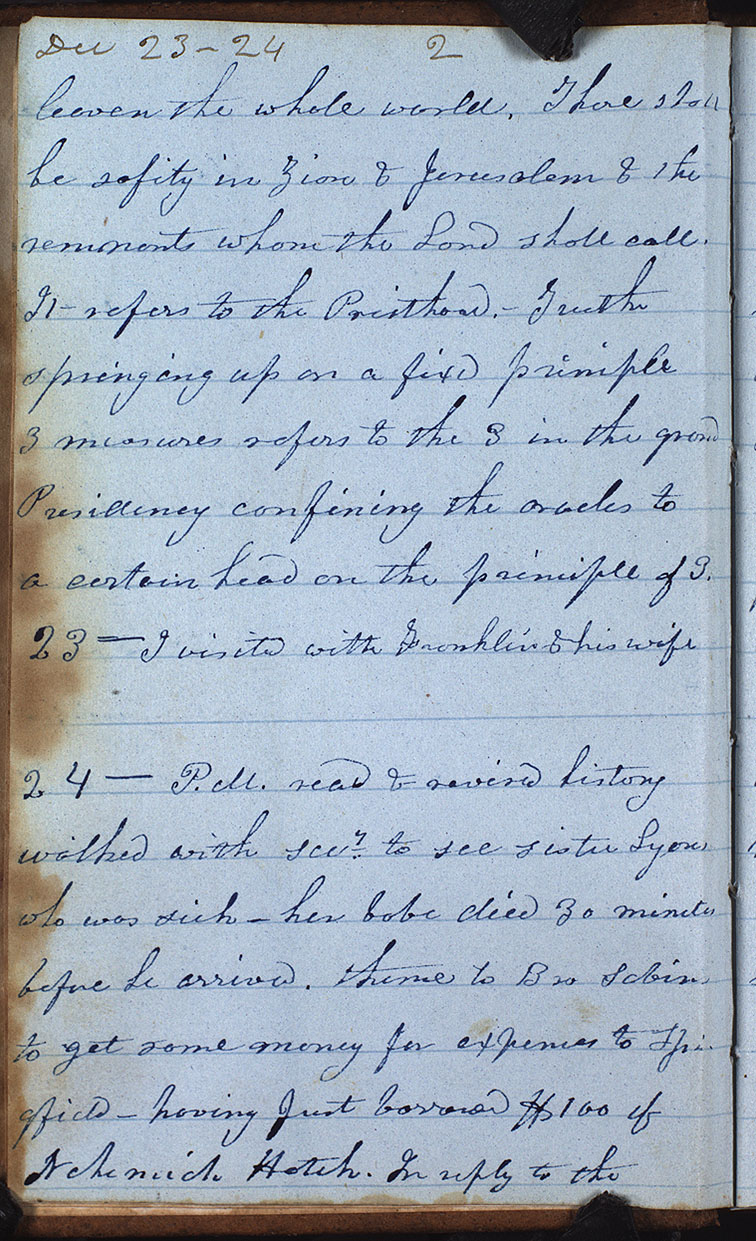 Dec 23-24 2
leaven the whole world. There shall
be safity in Zion & Jerusalem & the
remnants whom the Lord shall call.
It refers to the Priesthood.- Truth
springing up on a fixd priniple
3 measures refers to the 3 in the grand
Presidency confining the oracles to
a certain head on the principle of 3.
23 — I visitd with Franklin & his wife
24 — P.M. read & revised history
walked with secy. to see sister Lyons
who was sick - her babe died 30 minutes
before he arrived. thence to Bro Sabins
to get some money for expenses to Spri-
gfield - having just borrowed $100 of
Nehemiah Hatch. In reply to the